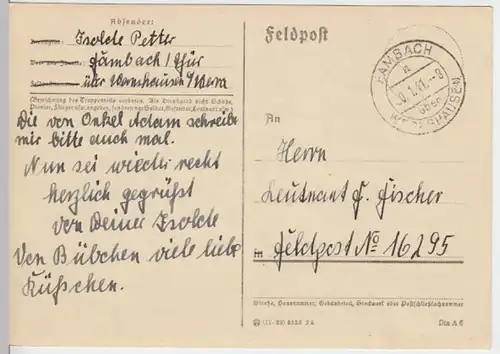 Absender:
Isolde Petter
Fambach / Thür
über Wernshausen / Werra
(Bezeichnung des Truppenteils verboten. Als Dienstgrad nicht Schütze,
Die von Onkel Adam schreibe
mir bitte auch mal.
Nun sei wieder recht
herzlich gegrüßt
von Deiner Isolde
Von Bübchen viele liebe
Küßchen.
Feldpost
FAMBACH
über
WERNSHAUSEN
An
Herrn
Leutnant F. Fischer
in Feldpost No 16295
Straße, Hausnummer, Gebäudeteil, Stockwerk oder Postschließfachnummer
Din A 6